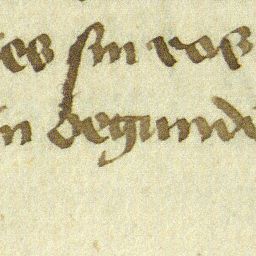 es sin ros
in begunde